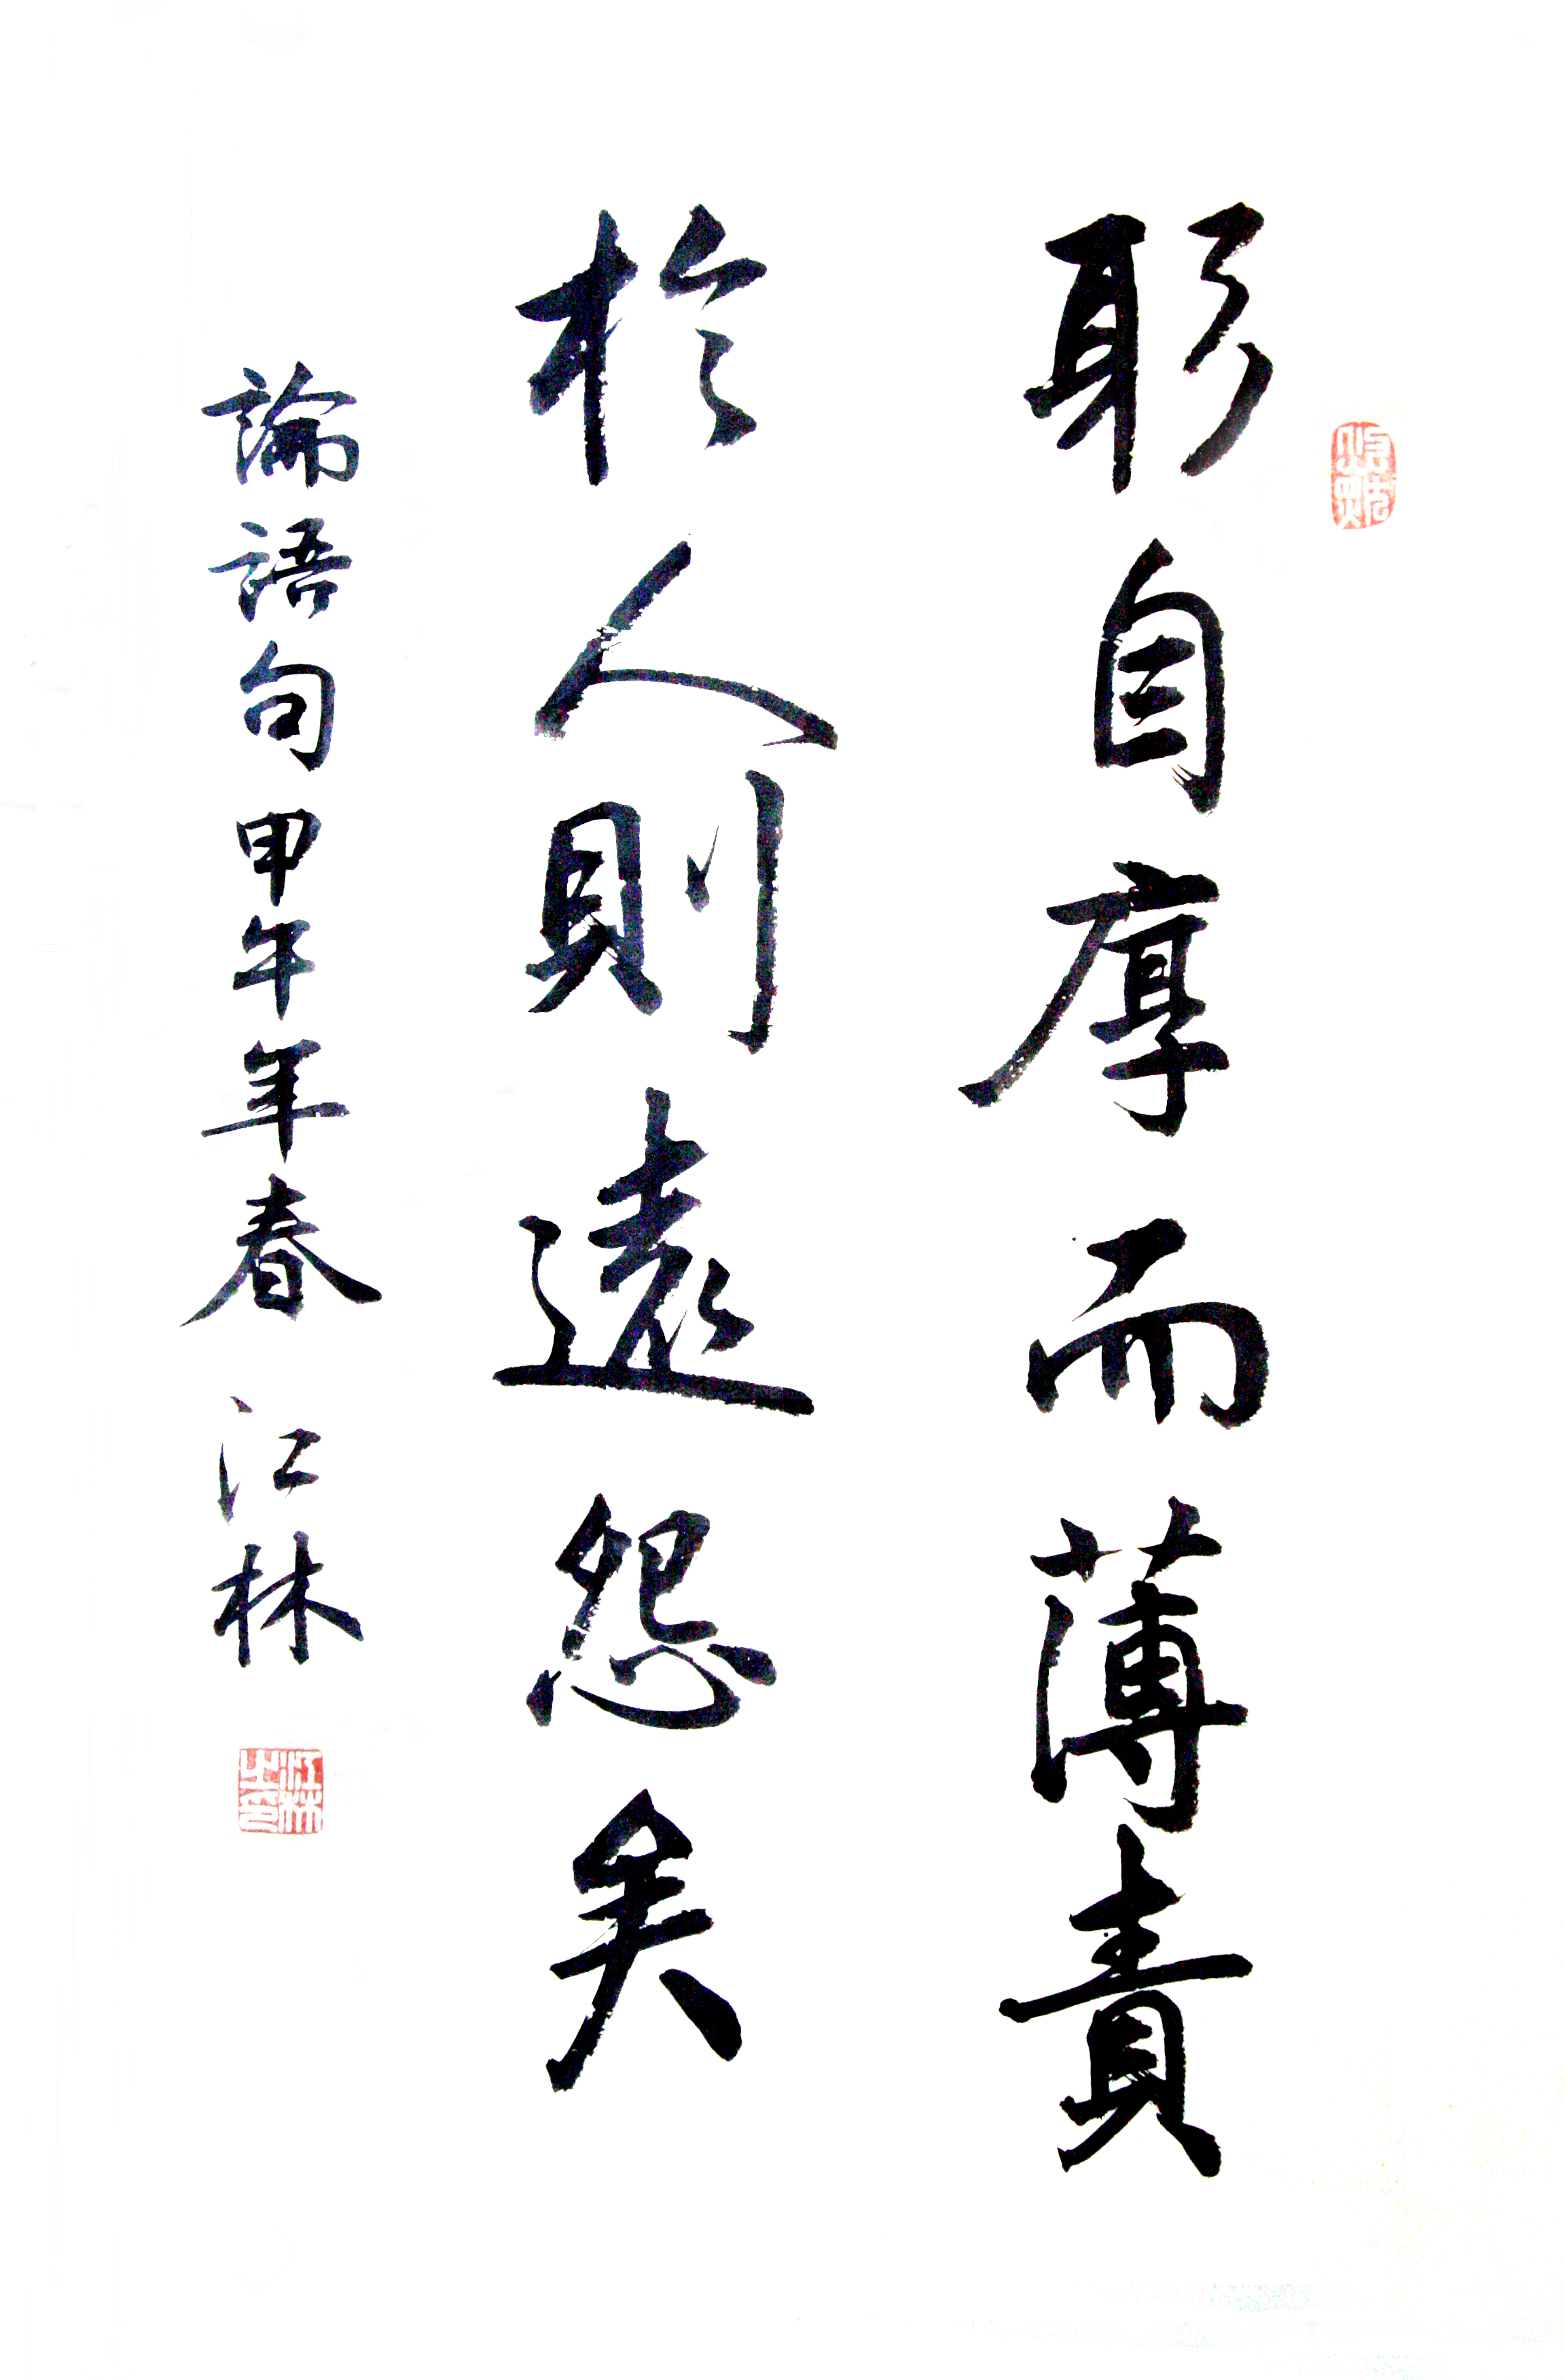 躬自厚而薄責
於人則遠怨矣
論語句 甲午年春 江林
江林
之印